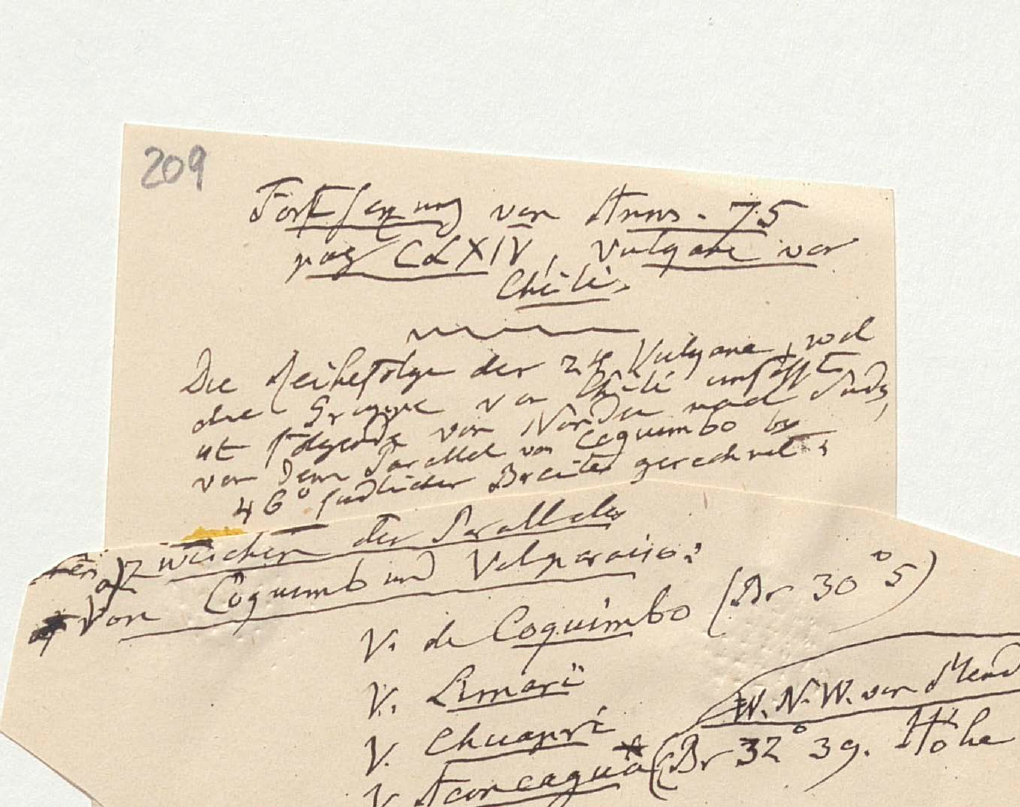 209
Fortsezung von Anm. 75
pag CCLXIV, Vulgane von
Chili.
Die Reihefolge der 24 Vulgane, welche
die Gruppe von Chili umfasst
ist folgende von Norden nach Süden,
von dem Parallel von Coquimbo bis
46° südlicher Breite gerechnet:
a) zwischen den Parallelen
von Coquimbo und Valparaiso:
V. de Coquimbo (Br 30° 5)
V. Limari
V. Chuapri
W.N.W. von Mend
V. Aconcagua* (Br 32° 39. Höhe